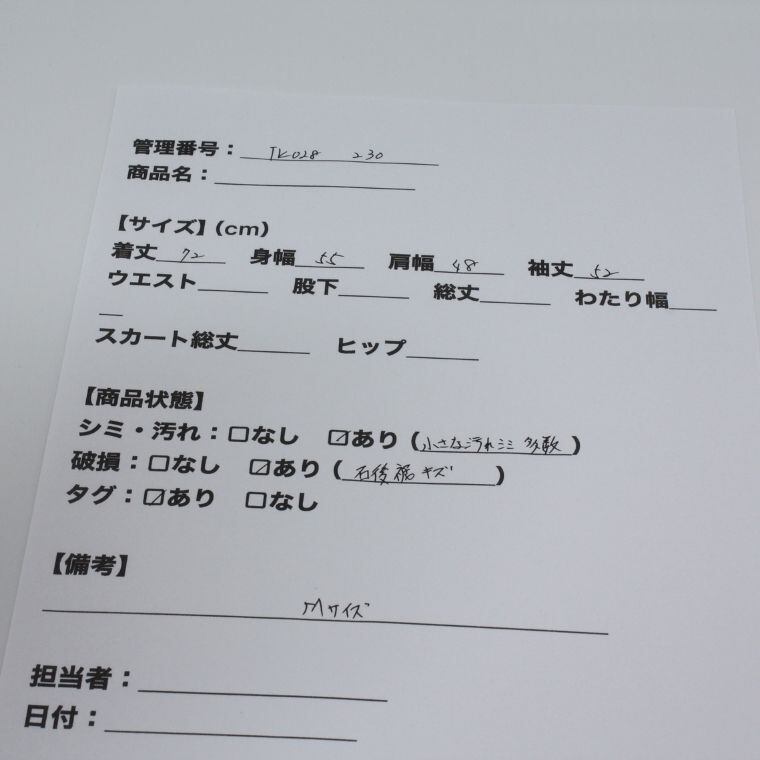 管理番号：TK028 230
商品名：
【サイズ】(cm)
着丈 72 身幅 55 肩幅 48 袖丈 52
ウエスト 股下 総丈 わたり幅
スカート総丈 ヒップ
【商品状態】
シミ・汚れ：□なし ☑あり（小さな汚れシミ多数）
破損：□なし ☑あり（右後裾キズ）
タグ：☑あり □なし
【備考】
Mサイズ
担当者：
日付：